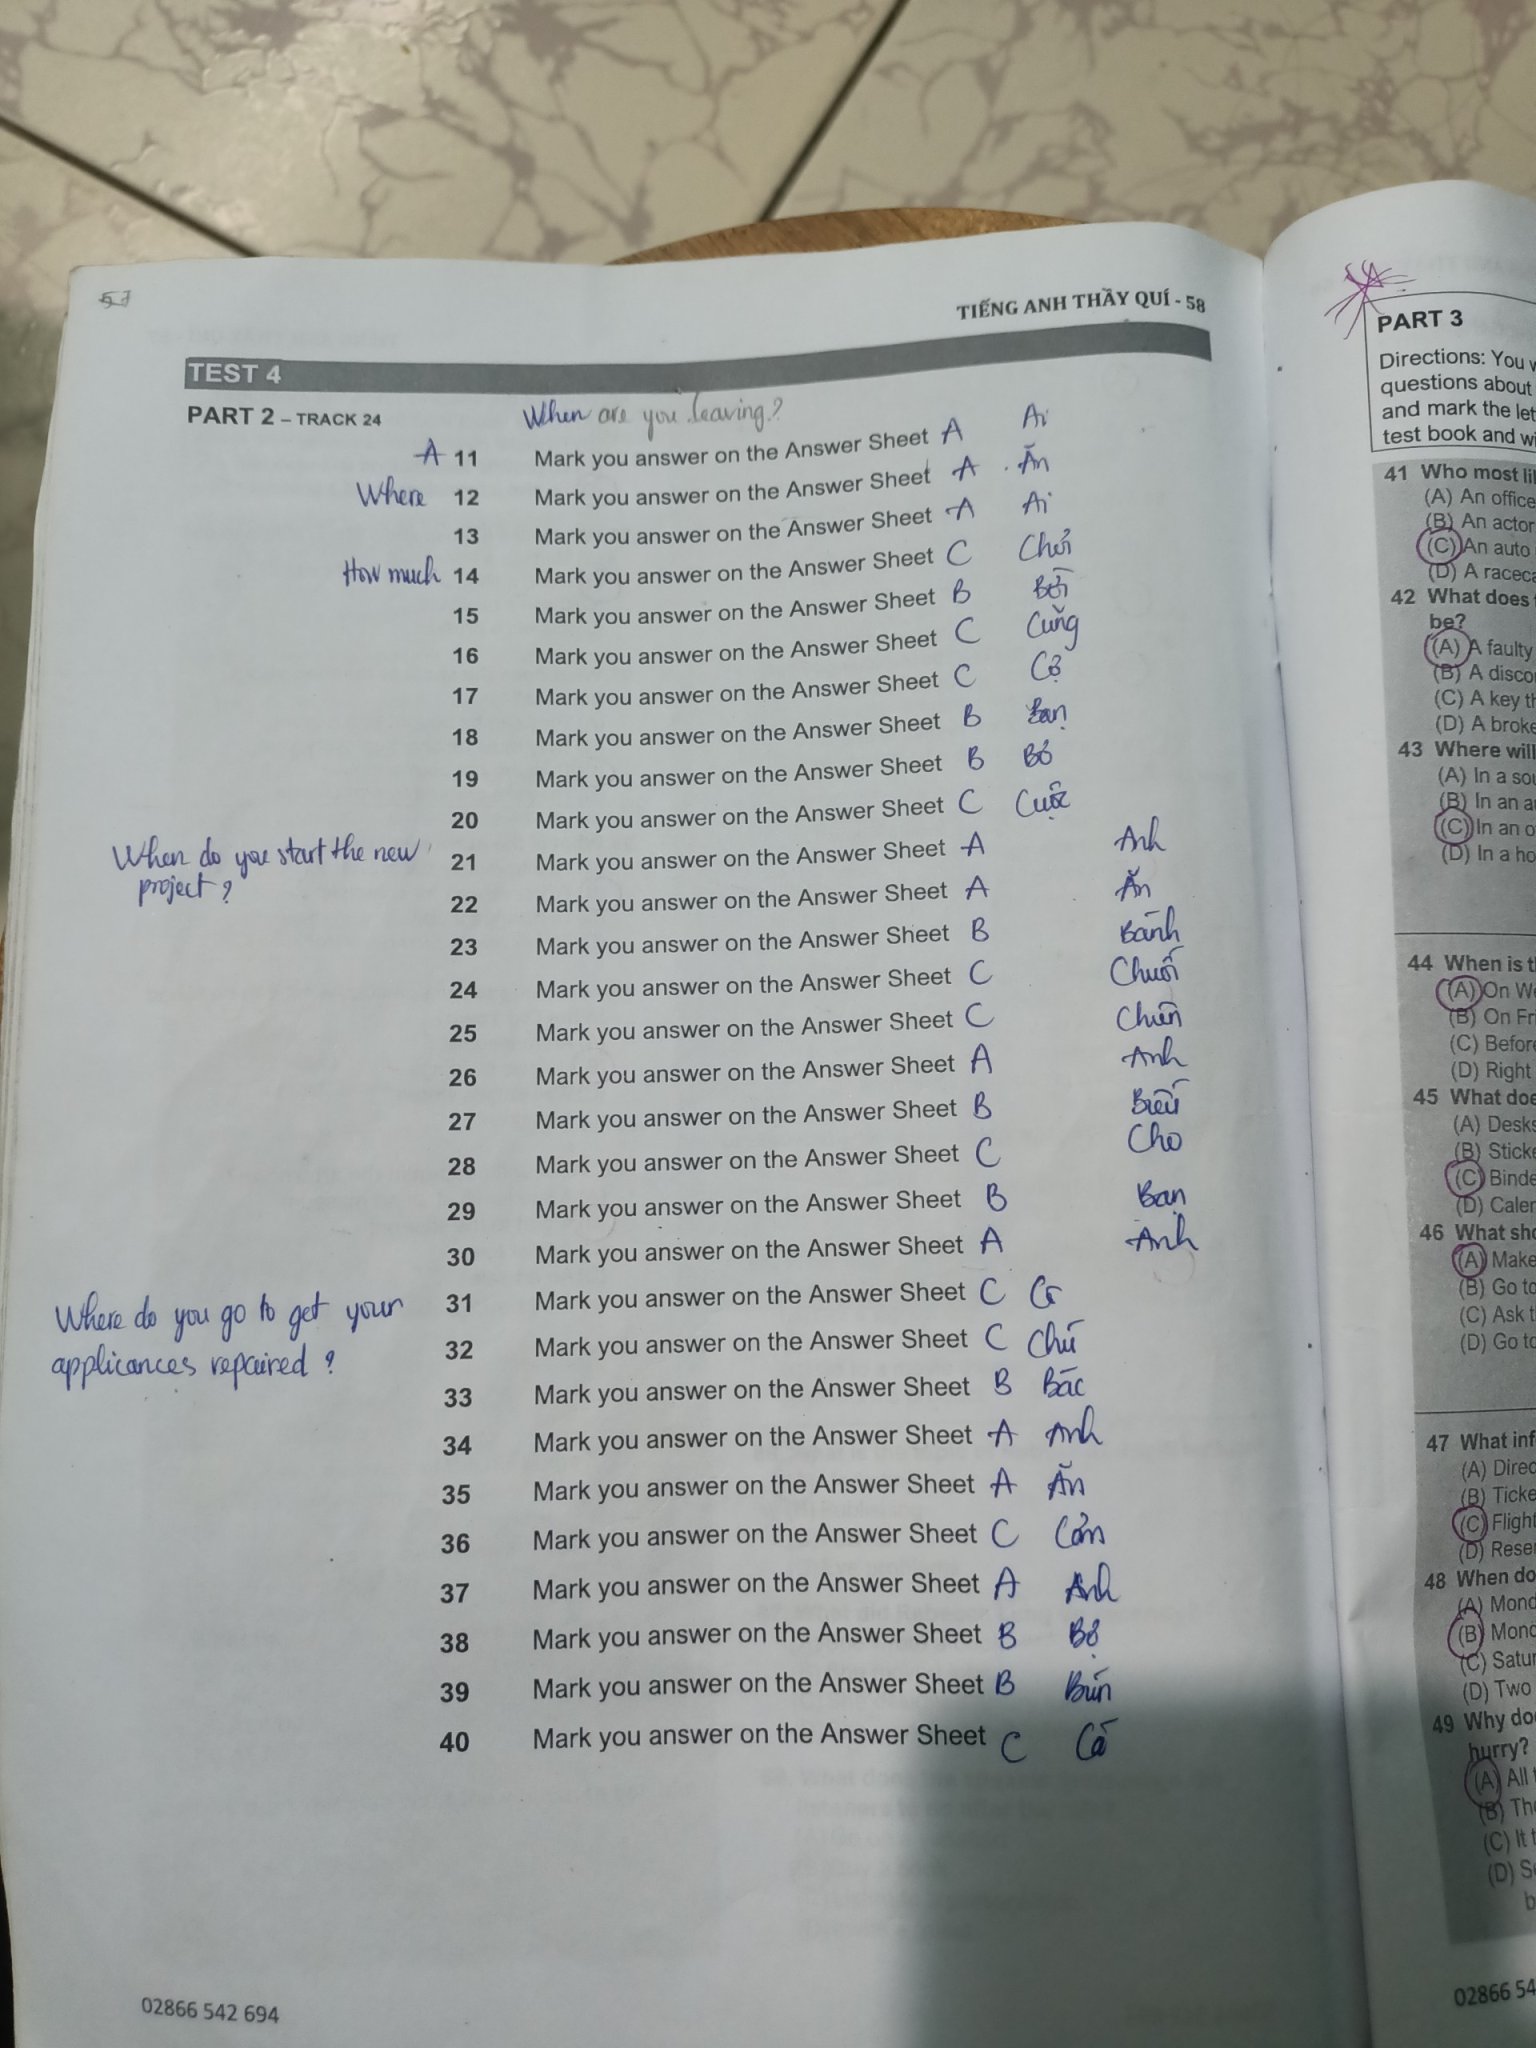 57
TIẾNG ANH THẦY QUÍ - 58
TEST 4
PART 2 – TRACK 24
When are you leaving?
A 11 Mark you answer on the Answer Sheet A Ai
Where 12 Mark you answer on the Answer Sheet A Ăn
13 Mark you answer on the Answer Sheet A Ai
How much 14 Mark you answer on the Answer Sheet C Chơi
15 Mark you answer on the Answer Sheet B Bởi
16 Mark you answer on the Answer Sheet C Cũng
17 Mark you answer on the Answer Sheet C Cọ
18 Mark you answer on the Answer Sheet B Bạn
19 Mark you answer on the Answer Sheet B Bỏ
20 Mark you answer on the Answer Sheet C Cuộc
When do you start the new
project?
21 Mark you answer on the Answer Sheet A Anh
22 Mark you answer on the Answer Sheet A Ăn
23 Mark you answer on the Answer Sheet B Bánh
24 Mark you answer on the Answer Sheet C Chuối
25 Mark you answer on the Answer Sheet C Chiên
26 Mark you answer on the Answer Sheet A Anh
27 Mark you answer on the Answer Sheet B Biếu
28 Mark you answer on the Answer Sheet C Cho
29 Mark you answer on the Answer Sheet B Bạn
30 Mark you answer on the Answer Sheet A Anh
Where do you go to get your
applicances repaired?
31 Mark you answer on the Answer Sheet C
32 Mark you answer on the Answer Sheet C Chú
33 Mark you answer on the Answer Sheet B Bác
34 Mark you answer on the Answer Sheet A Anh
35 Mark you answer on the Answer Sheet A Ăn
36 Mark you answer on the Answer Sheet C Cơm
37 Mark you answer on the Answer Sheet A Anh
38 Mark you answer on the Answer Sheet B
39 Mark you answer on the Answer Sheet B Bún
40 Mark you answer on the Answer Sheet C Cá
02866 542 694
PART 3
Directions: You
questions about
and mark the
test book and
41 Who most
(A) An office
(B) An actor
(C) An auto
(D) A
42 What does
be?
(A) A faulty
(B) A
(C) A key
(D) A
43 Where will
(A) In a
(B) In an
(C) In an
(D) In a
44 When is
(A) On
(B) On
(C)
(D) Right
45 What
(A)
(B)
(C)
(D)
46 What
(A) Make
(B) Go to
(C) Ask
(D) Go to
47 What
(A)
(B)
(C) Flight
(D)
48 When do
(A)
(B)
(C)
(D) Two
49 Why
hurry?
(A) All
(B)
(C) It
(D)
02866 54